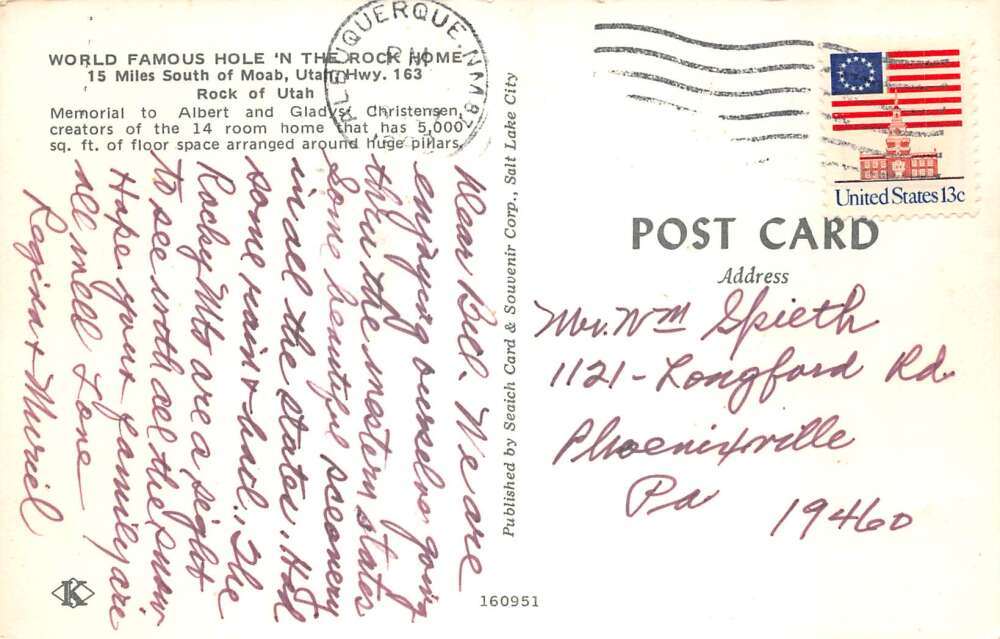 WORLD FAMOUS HOLE 'N THE ROCK HOME
15 Miles South of Moab, Utah Hwy. 163
Rock of Utah
Memorial to Albert and Gladys Christensen,
creators of the 14 room home that has 5,000
sq. ft. of floor space arranged around huge pillars.
ALBUQUERQUE, NM 87
PM
Dear Bill. We are
enjoying ourselves going
thru the western states
Some beautiful sceenery
in all the states. Had
some rain & hail. The
Rocky Mts are a sight
to see with all the snow
Hope you & family are
all well Love
Regina & Muriel
Published by Seaich Card & Souvenir Corp., Salt Lake City
K
160951
United States 13c
POST CARD
Address
Mr. Wm Spieth
1121 - Longford Rd.
Phoenixville
Pa 19460